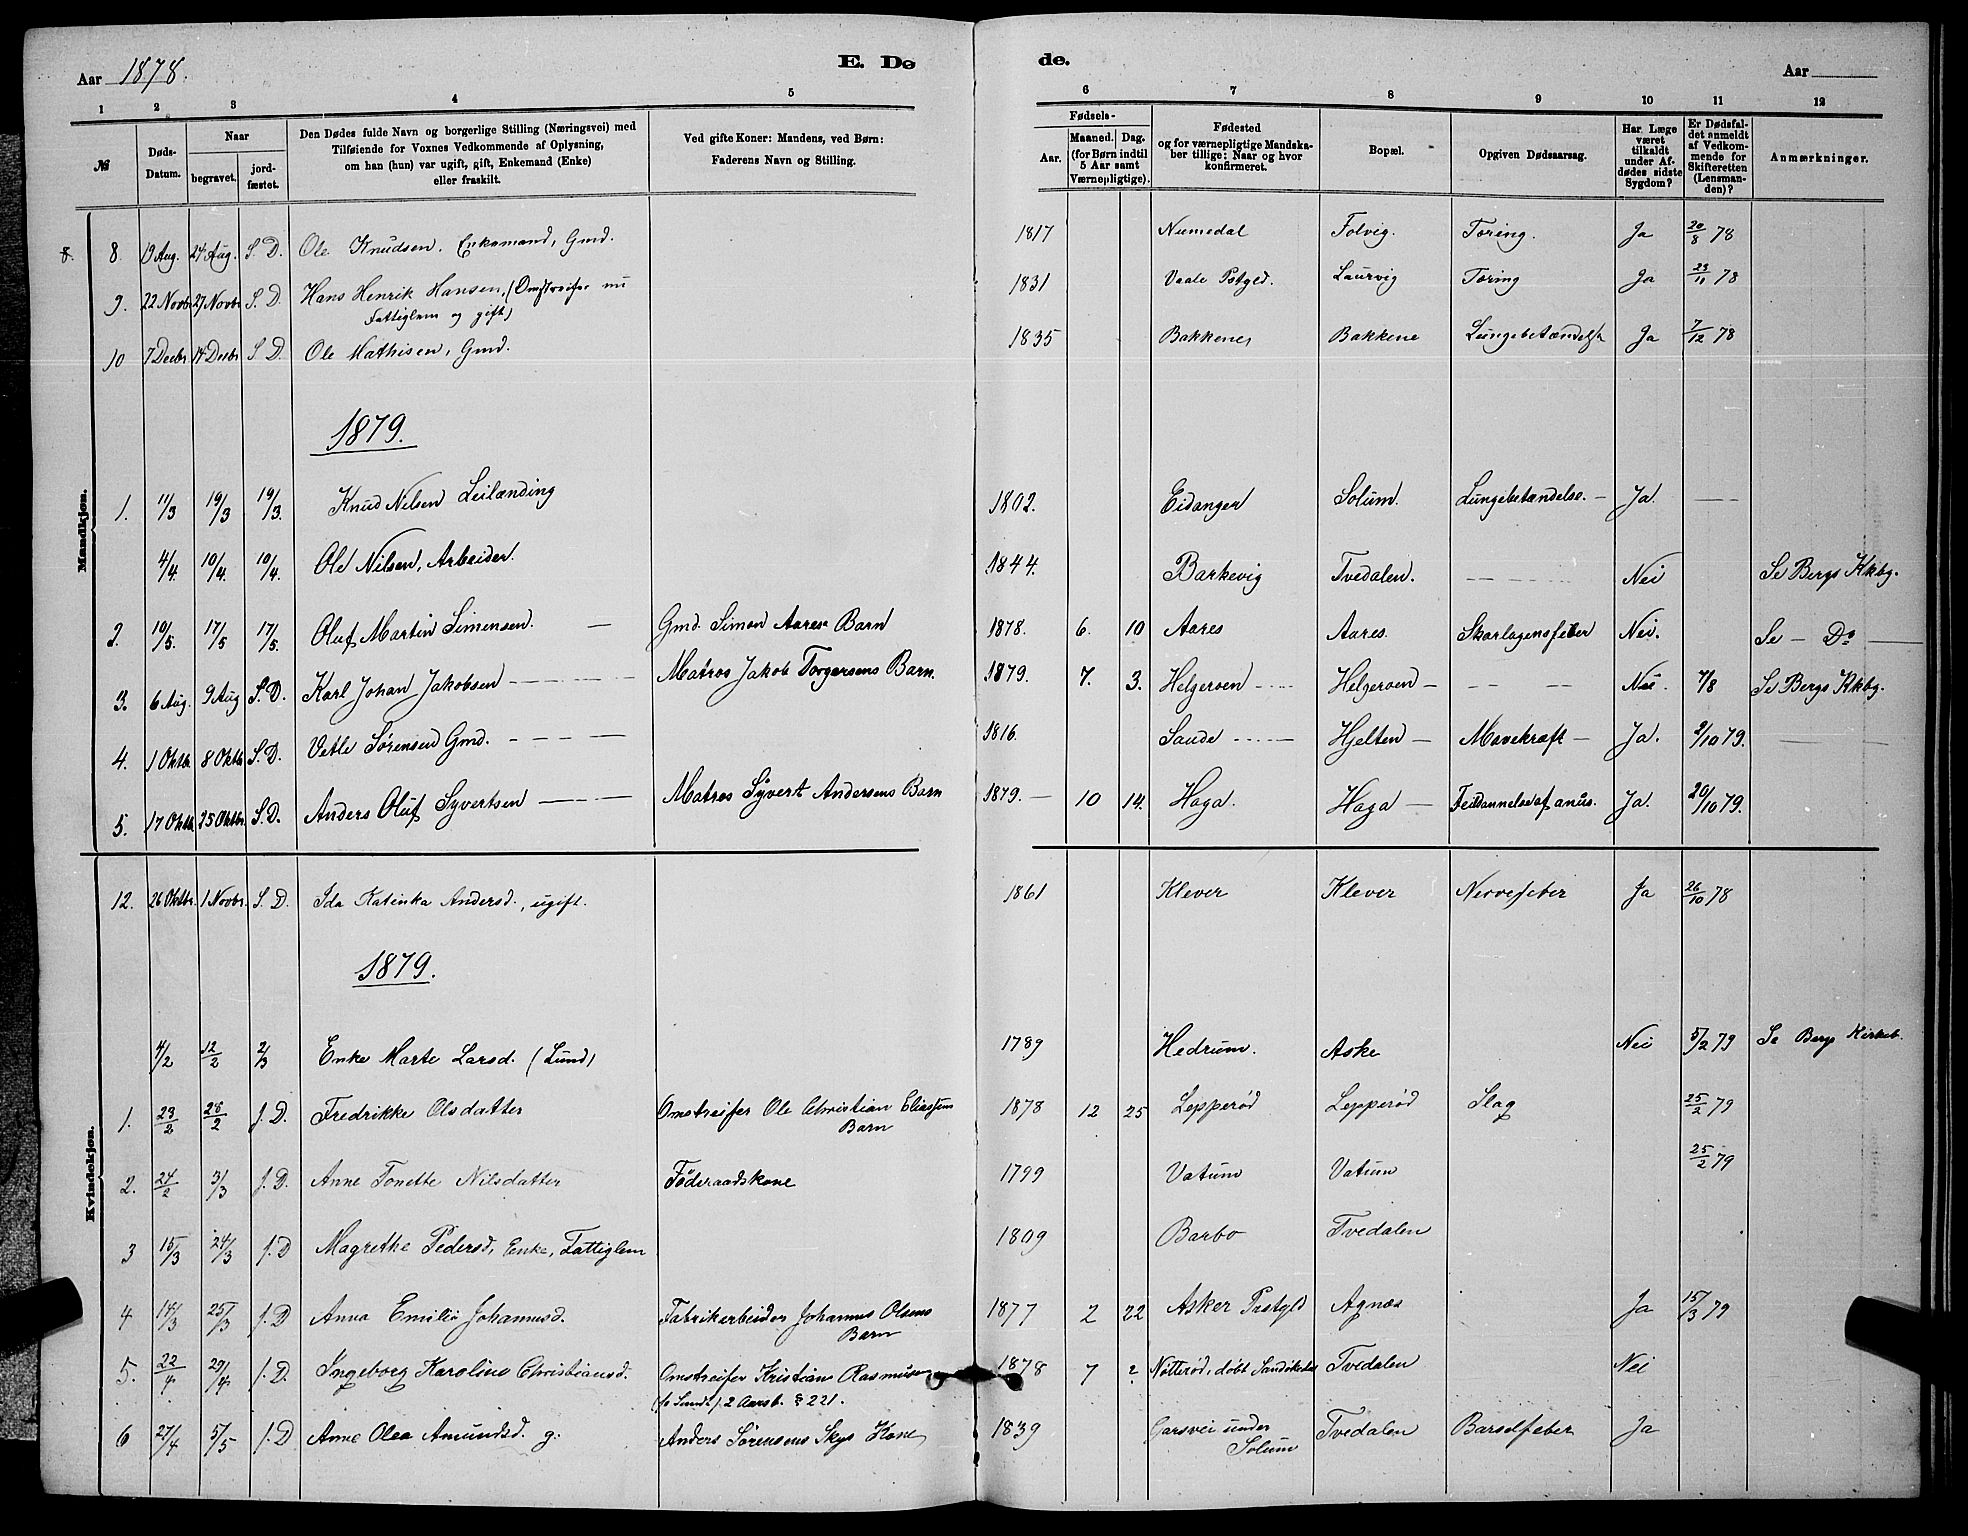 Aar 1878. E. Dø de. Aar
1 2 3 4 5 6 7 8 9 10 11 12
№ Døds-Datum. Naar begravet. jord-fæstet. Den Dødes fulde Navn og borgerlige Stilling (Næringsvei) med Tilføiende for Voxnes Vedkommende af Oplysning, om han (hun) var ugift, gift, Enkemand (Enke) eller fraskilt. Ved gifte Koner: Mandens, ved Børn: Faderens Navn og Stilling. Fødsels- Aar. Maaned. Dag. (for Børn indtil 5 Aar samt Værnepligtige). Fødested og for værnepligtige Mandskaber tillige: Naar og hvor konfirmeret. Bopæl. Opgiven Dødsaarsag. Har Læge været tilkaldt under Afdødes sidste Sygdom? Er Dødsfaldet anmeldt af Vedkommende for Skifteretten (Lensmanden)? Anmærkninger.
Mandkjøn.
8. 8 19 Aug. 24 Aug. S. D. Ole Knudsen, Enkemand, Gmd. 1817 Numedal Folvig. Tæring. Ja 20/8 78
9. 22 Novbr 27 Novbr S. D. Hans Henrik Hansen, (Omstreifer nu 1831 Vaale Pstgld. Laurvig Tæring Ja 23/11 78
Fattiglem og gift)
10 7 Decbr. 14 Decbr S D. Ole Mathisen, Gmd. 1835 Bakkene, Bakkene Lungebetændelse Ja 7/12 78
1879.
1. 11/3 19/3 19/3. Knud Nilsen Leilænding 1802. Eidanger Solum. Lungebetændelse. — Ja. —
4/4. 10/4. 10/4. Ole Nilsen, Arbeider. 1844. Barkevig Tvedalen. — Nei Se Bergs Kkbg.
2. 10/5. 17/5 17/5. Oluf Martin Simensen. — Gmd. Simon Aares Barn 1878. 6. 10 Aares Aares. Skarlagensfeber Nei. Se — Do —
3. 6 Aug. 9 Aug S. D. Karl Johan Jakobsen — Matros Jakob Torgersens Barn. 1879. 7. 3. Helgeroen — Helgeroen — — Nei. 7/8 Se Bergs Kkbg.
4. 1 Oktb. 8 Oktb. S. D. Vetle Sørensen Gmd. — 1816. Saude — Hjelten — Mavekræft — Ja. 2/10 79. —
5. 17 Oktb. 25 Oktbr. S. D. Anders Oluf Syvertsen — Matros Syvert Andersens Barn 1879. — 10 14. Haga. Haga — Feildannelse af anus. Ja. 20/10 79.
Kvindekjøn.
12. 26 Oktbr. 1 Novbr. S. D. Ida Katinka Andersd., ugift. 1861 Klever Klever Nervefeber Ja 26/10 78
1879.
4/2 12/2 2/3 Enke Marte Larsd. (Lund) 1789 Hedrum. Aske Nei 5/2 79 Se Bergs Kirkeb.
1. 23/2 28/2 J. D. Fredrikke Olsdatter Omstreifer Ole Christian Eliassens 1878 12 25 Lepperød Lepperød Slag 25/2 79
Barn
2. 24/2 3/3 J. D. Anne Tonette Nilsdatter Føderaadskone 1799 Vatum Vatum 25/2 79
3 15/3 24/3 J. D Magrethe Pedersd, Enke, Fattiglem 1809 Barbo Tvedalen
4 14/3 25/3 J. D Anna Emilie Johannesd. Fabrikarbeider Johannes Olsens 1877 2 22 Asker Pstgld Agnæs Ja 15/3 79
Barn
5. 22/4 29/4 J. D. Ingeborg Karoline Christiansd. Omstreifer Kristian Rasmusen 1878 7 ? Nøtterød, døbt Sandøkedal Tvedalen Nei
2 Aarsb. § 221.
6 27/4 5/5 J. D Anne Olea Amundsd. g. Anders Sørensens Skys Kone 1839 Garsvei under Tvedalen Barselfeber Ja
Solum